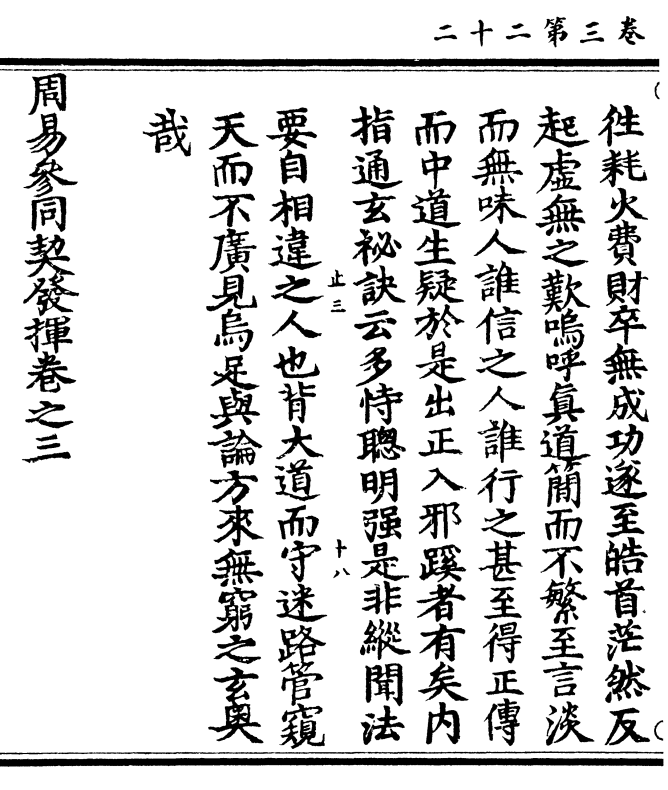 卷三第二十二
徃耗火費財卒無成功遂至皓首茫然反
起虛無之歎嗚呼眞道簡而不繁至言淡
而無味人誰信之人誰行之甚至得正傳
而中道生疑於是出正入邪蹊者有矣內
指通玄祕訣云多恃聰明强是非縱聞法
止三
十八
要自相違之人也背大道而守迷路管窺
天而不廣見烏足與論方來無窮之玄奥
哉
周易參同契發揮卷之三